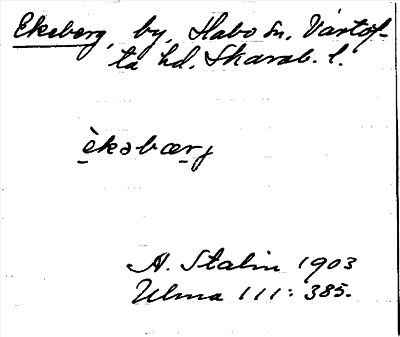 Ekeberg, by, Habo sn, Vartof-
ta hd, Skarab. l.
èkəbærj
A. Stalin 1903
Ulma 111: 385.